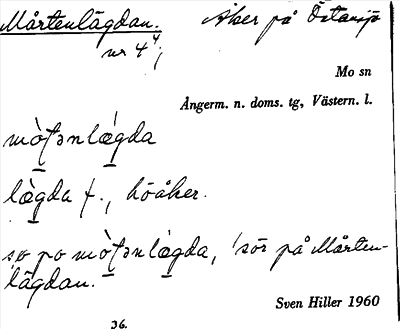 Mårtenlägdan. Åker på Östansjö
nr 4⁴;
Mo sn
Angerm. n. doms. tg, Västern. l.
mò̱ʃənlǽ̱gda
læ̱̀gda f., höåker.
sø po mò̱ʃənlǽ̱gda, 'sör på Mårten-
lägdan.'
Sven Hiller 1960
36.